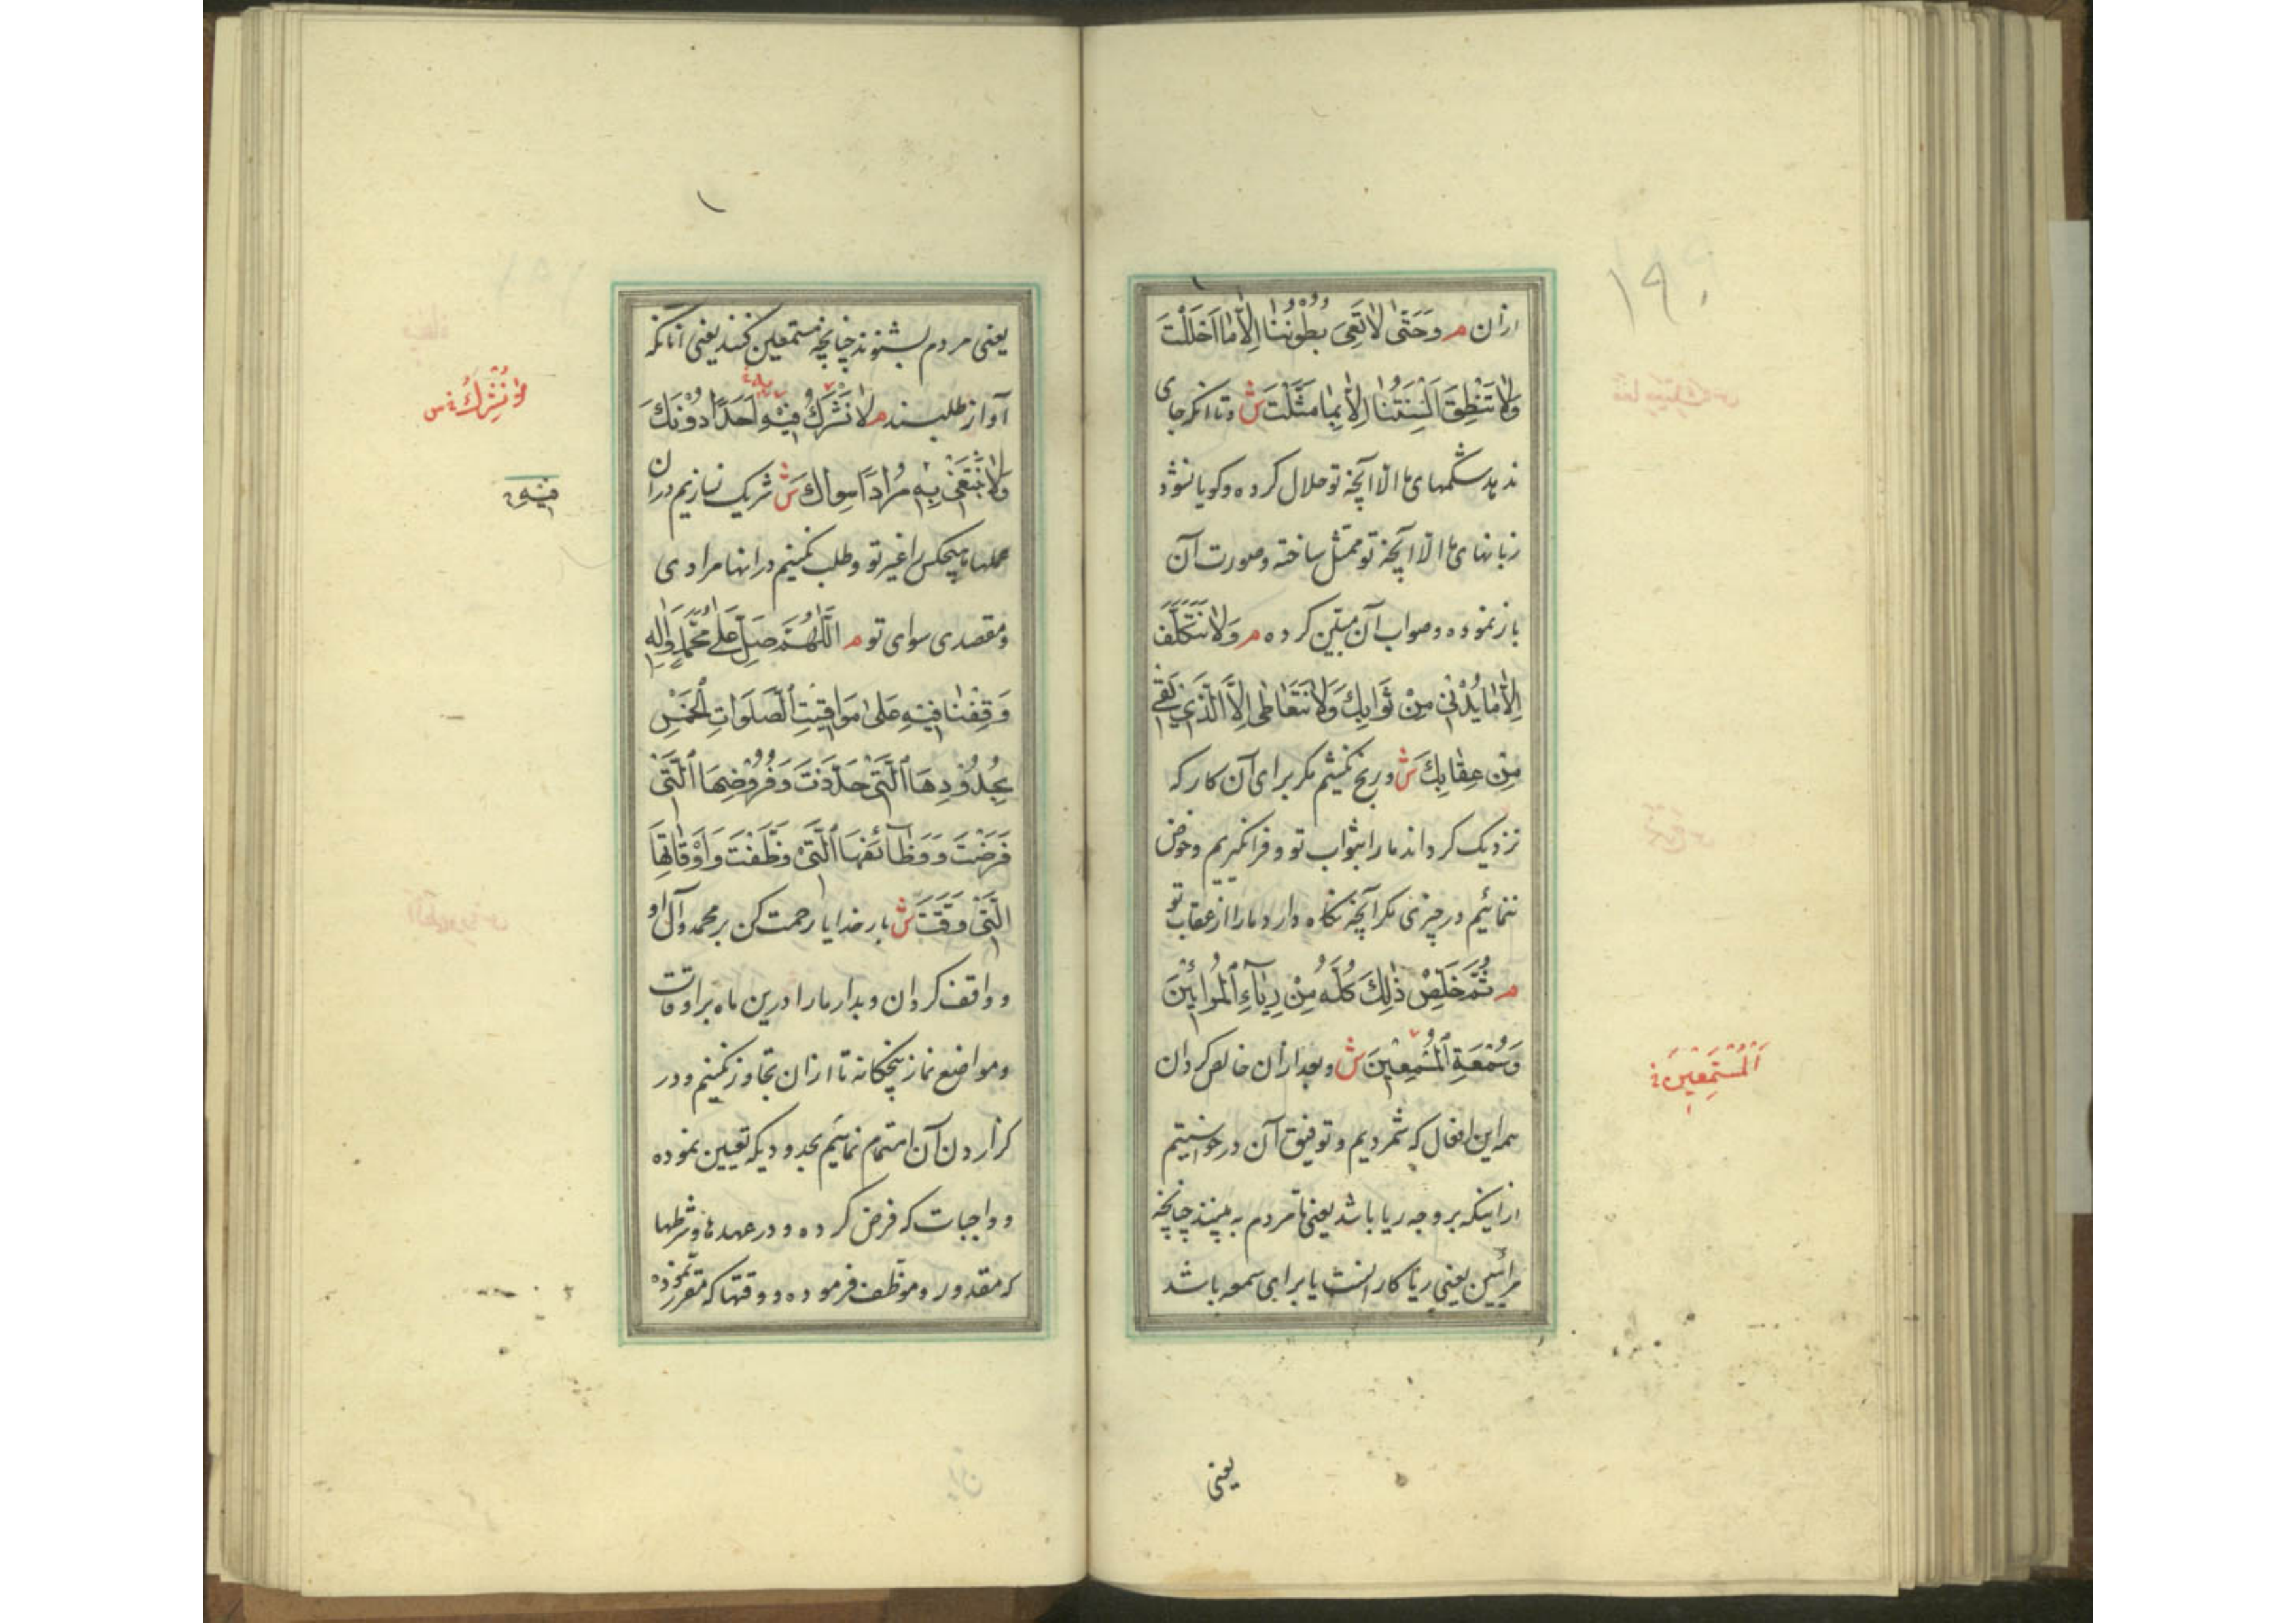 ازان م وَحَتّٰى لَا تَعِىَ بُطُونُنَا اِلَّا مَا اَحْلَلْتَ
وَلَا تَنْطِقَ اَلْسِنَتُنَا اِلَّا بِمَا مَثَّلْتَ ش وتا انکه جای
ندهد شکمهای ما الا آنچه تو حلال کرده و کویا نشود
زبانهای ما الا آنچه تو ممثل ساخته و صورت آن
باز نموده و صواب آن مبین کرده م وَلَا نَتَكَلَّفَ
اِلَّا مَا يُدْنِى مِنْ ثَوَابِكَ وَلَا نَتَعَاطٰى اِلَّا الَّذِى يَقِى
مِنْ عِقَابِكَ ش و رنج نکشیم مکر برای آن کار که
نزدیک کرداند ما را بثواب تو و فرا نکیریم و خوض
ننمائیم در چیزی مکر آنچه نکاه دارد ما را از عقاب تو
م ثُمَّ خَلِّصْ ذٰلِكَ كُلَّهُ مِنْ رِيَاءِ الْمُرَائِيْنَ
وَسُمْعَةِ الْمُسْمِعِيْنَ ش و بعد ازان خالص کردان
همه این افعال که شمردیم و توفیق آن در خواستیم
از اینکه بر وجه ریا باشد یعنی تا مردم به بینند چنانچه
مرائیین یعنی ریا کار انست یا برای سمعه باشد
اَلْمُسْتَمِعِيْنَ
یعنی
یعنی مردم بشنوند چنانچه مستمعین کنند یعنی آنانکه
آواز طلبند م لَا نُشْرِكُ فِيْهِ اَحَدًا دُوْنَكَ
وَلَا نَبْتَغِى بِهٖ مُرَادًا سِوَاكَ ش شریک نسازیم دران
عملها هیچکس را غیر تو و طلب نکنیم در انها مرادی
و مقصدی سوای تو م اَللّٰهُمَّ صَلِّ عَلٰى مُحَمَّدٍ وَاٰلِهٖ
وَقِفْنَا فِيْهِ عَلٰى مَوَاقِيْتِ الصَّلَوَاتِ الْخَمْسِ
بِحُدُوْدِهَا الَّتِىْ حَدَّدْتَ وَفُرُوْضِهَا الَّتِىْ
فَرَضْتَ وَوَظَآئِفِهَا الَّتِىْ وَظَّفْتَ وَاَوْقَاتِهَا
الَّتِىْ وَقَّتَّ ش بار خدایا رحمت کن بر محمد و آل او
و واقف کردان و بدار ما را درین ماه بر اوقات
و مواضع نماز پنجکانه تا ازان تجاوز نکنیم و در
کزاردن آن اهتمام نمائیم بحدودیکه تعیین نموده
و واجبات که فرض کرده و در عهدها و شرطها
که مقدور و موظف فرموده و وقتها که مقرر نموده
نُشْرِكُ
فِيْهِ